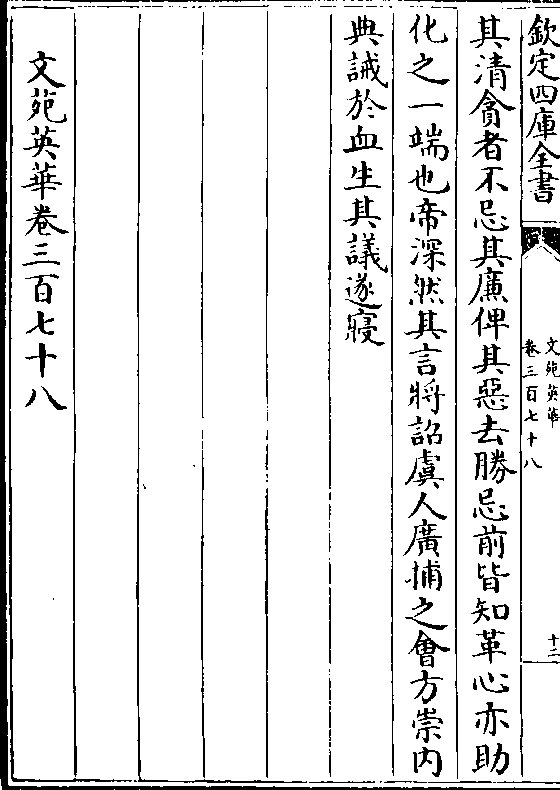 欽定四庫全書
文苑英華
卷三百七十八
十二
其清貪者不忌其廉俾其惡去勝忌前皆知革心亦助
化之一端也帝深然其言將詔虞人廣捕之會方崇内
典誡於血生其議遂寢
文苑英華卷三百七十八